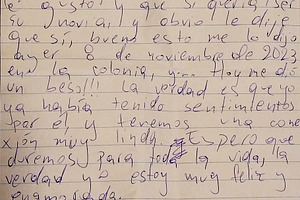 gustó! y que si quería ser
su novia, y obvio le dije
que sí, bueno esto me lo dijo
ayer 8 de noviembre de 2023
en la colonia, y... Hoy me dió
un beso!!! La verdad es que yo
ya había tenido sentimientos
por el y tenemos una cone
xión muy linda. Espero que
duremos para toda la vida, la
verdad yo estoy muy feliz y
enamorada.